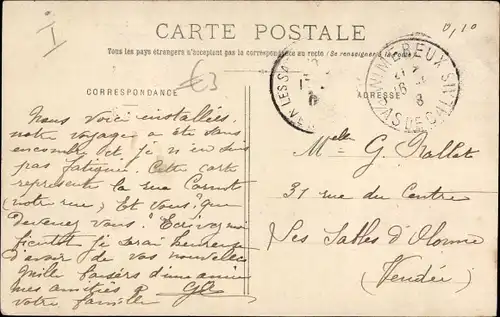 I
0,10
CARTE POSTALE
Tous les pays étrangers n'acceptent pas la correspondance au recto (Se renseigner à la Poste)
€3
CORRESPONDANCE
ADRESSE
WIMEREUX
PAS DE CALAIS
Nous voici installées,
notre voyage a été sans
encombre et je n'en suis
pas fatiguée. Cette carte
représente la rue Carnot
(notre rue) Et vous? Que
devenez vous? Ecrivez moi
bientôt je serai heureuse
d'avoir de vos nouvelles
Mille baisers d'une amie
mes amitiés à
votre famille
Melle G. Rallet
31 rue du Centre
Les Sables d'Olonne
(Vendée)